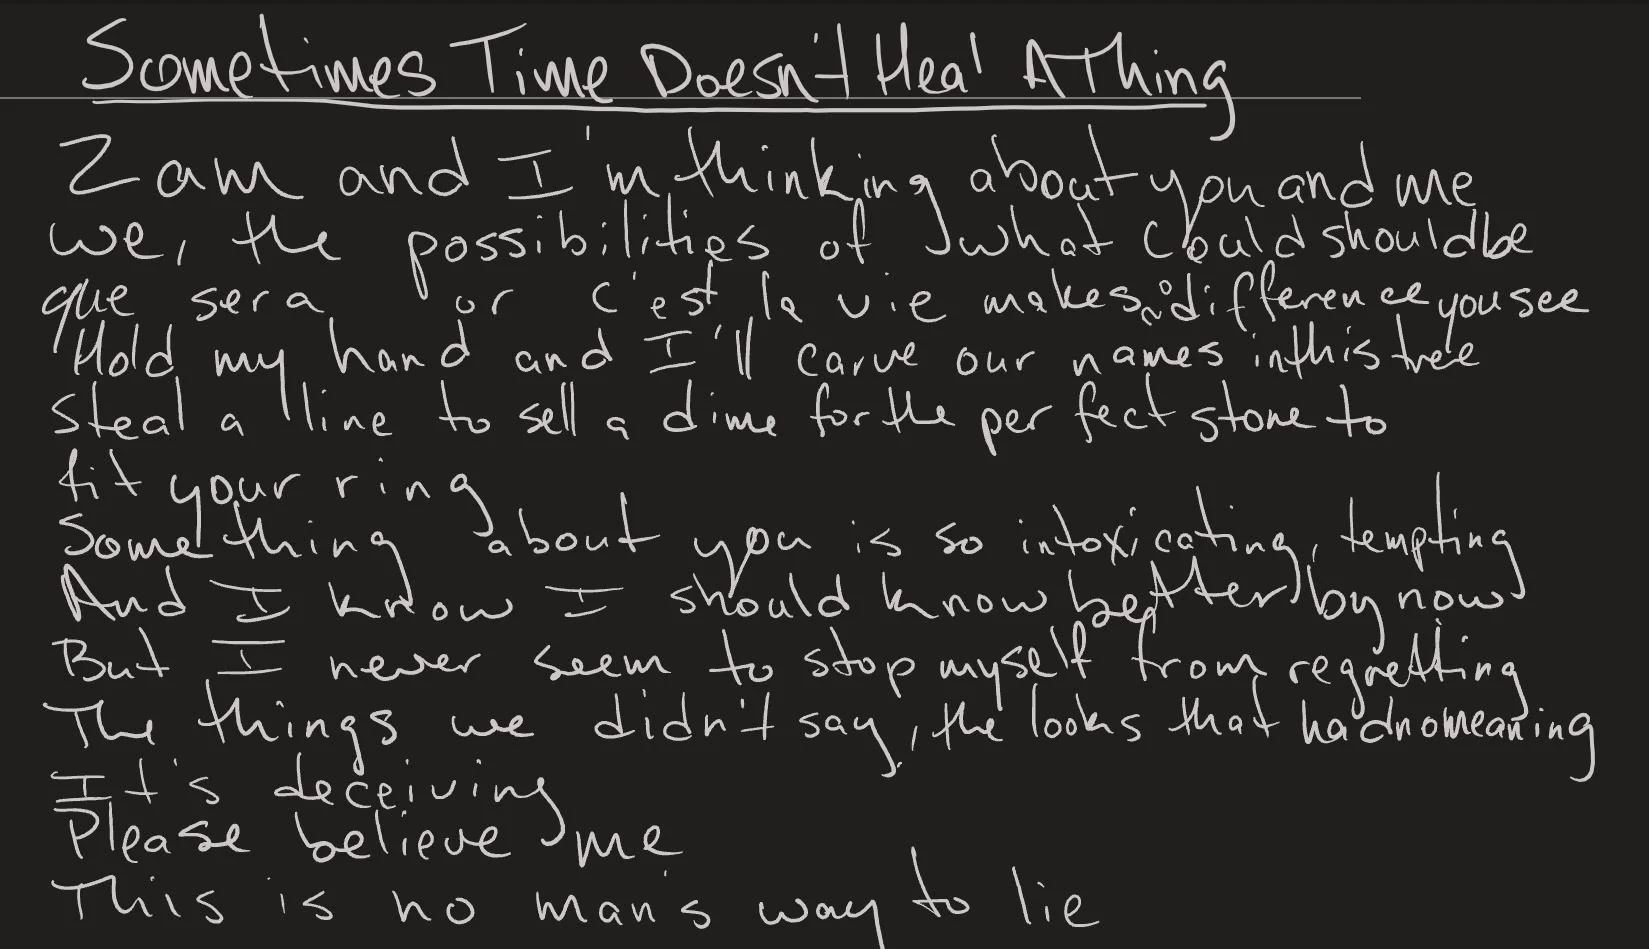 Sometimes Time Doesn't Heal A Thing
2am and I'm thinking about you and me
we, the possibilities of what could should be
que sera or c'est la vie makes no difference you see
Hold my hand and I'll carve our names in this tree
Steal a line to sell a dime for the perfect stone to
fit your ring
Something about you is so intoxicating, tempting
And I know I should know better by now
But I never seem to stop myself from regretting
The things we didn't say, the looks that had no meaning
It's deceiving
Please believe me
This is no man's way to lie